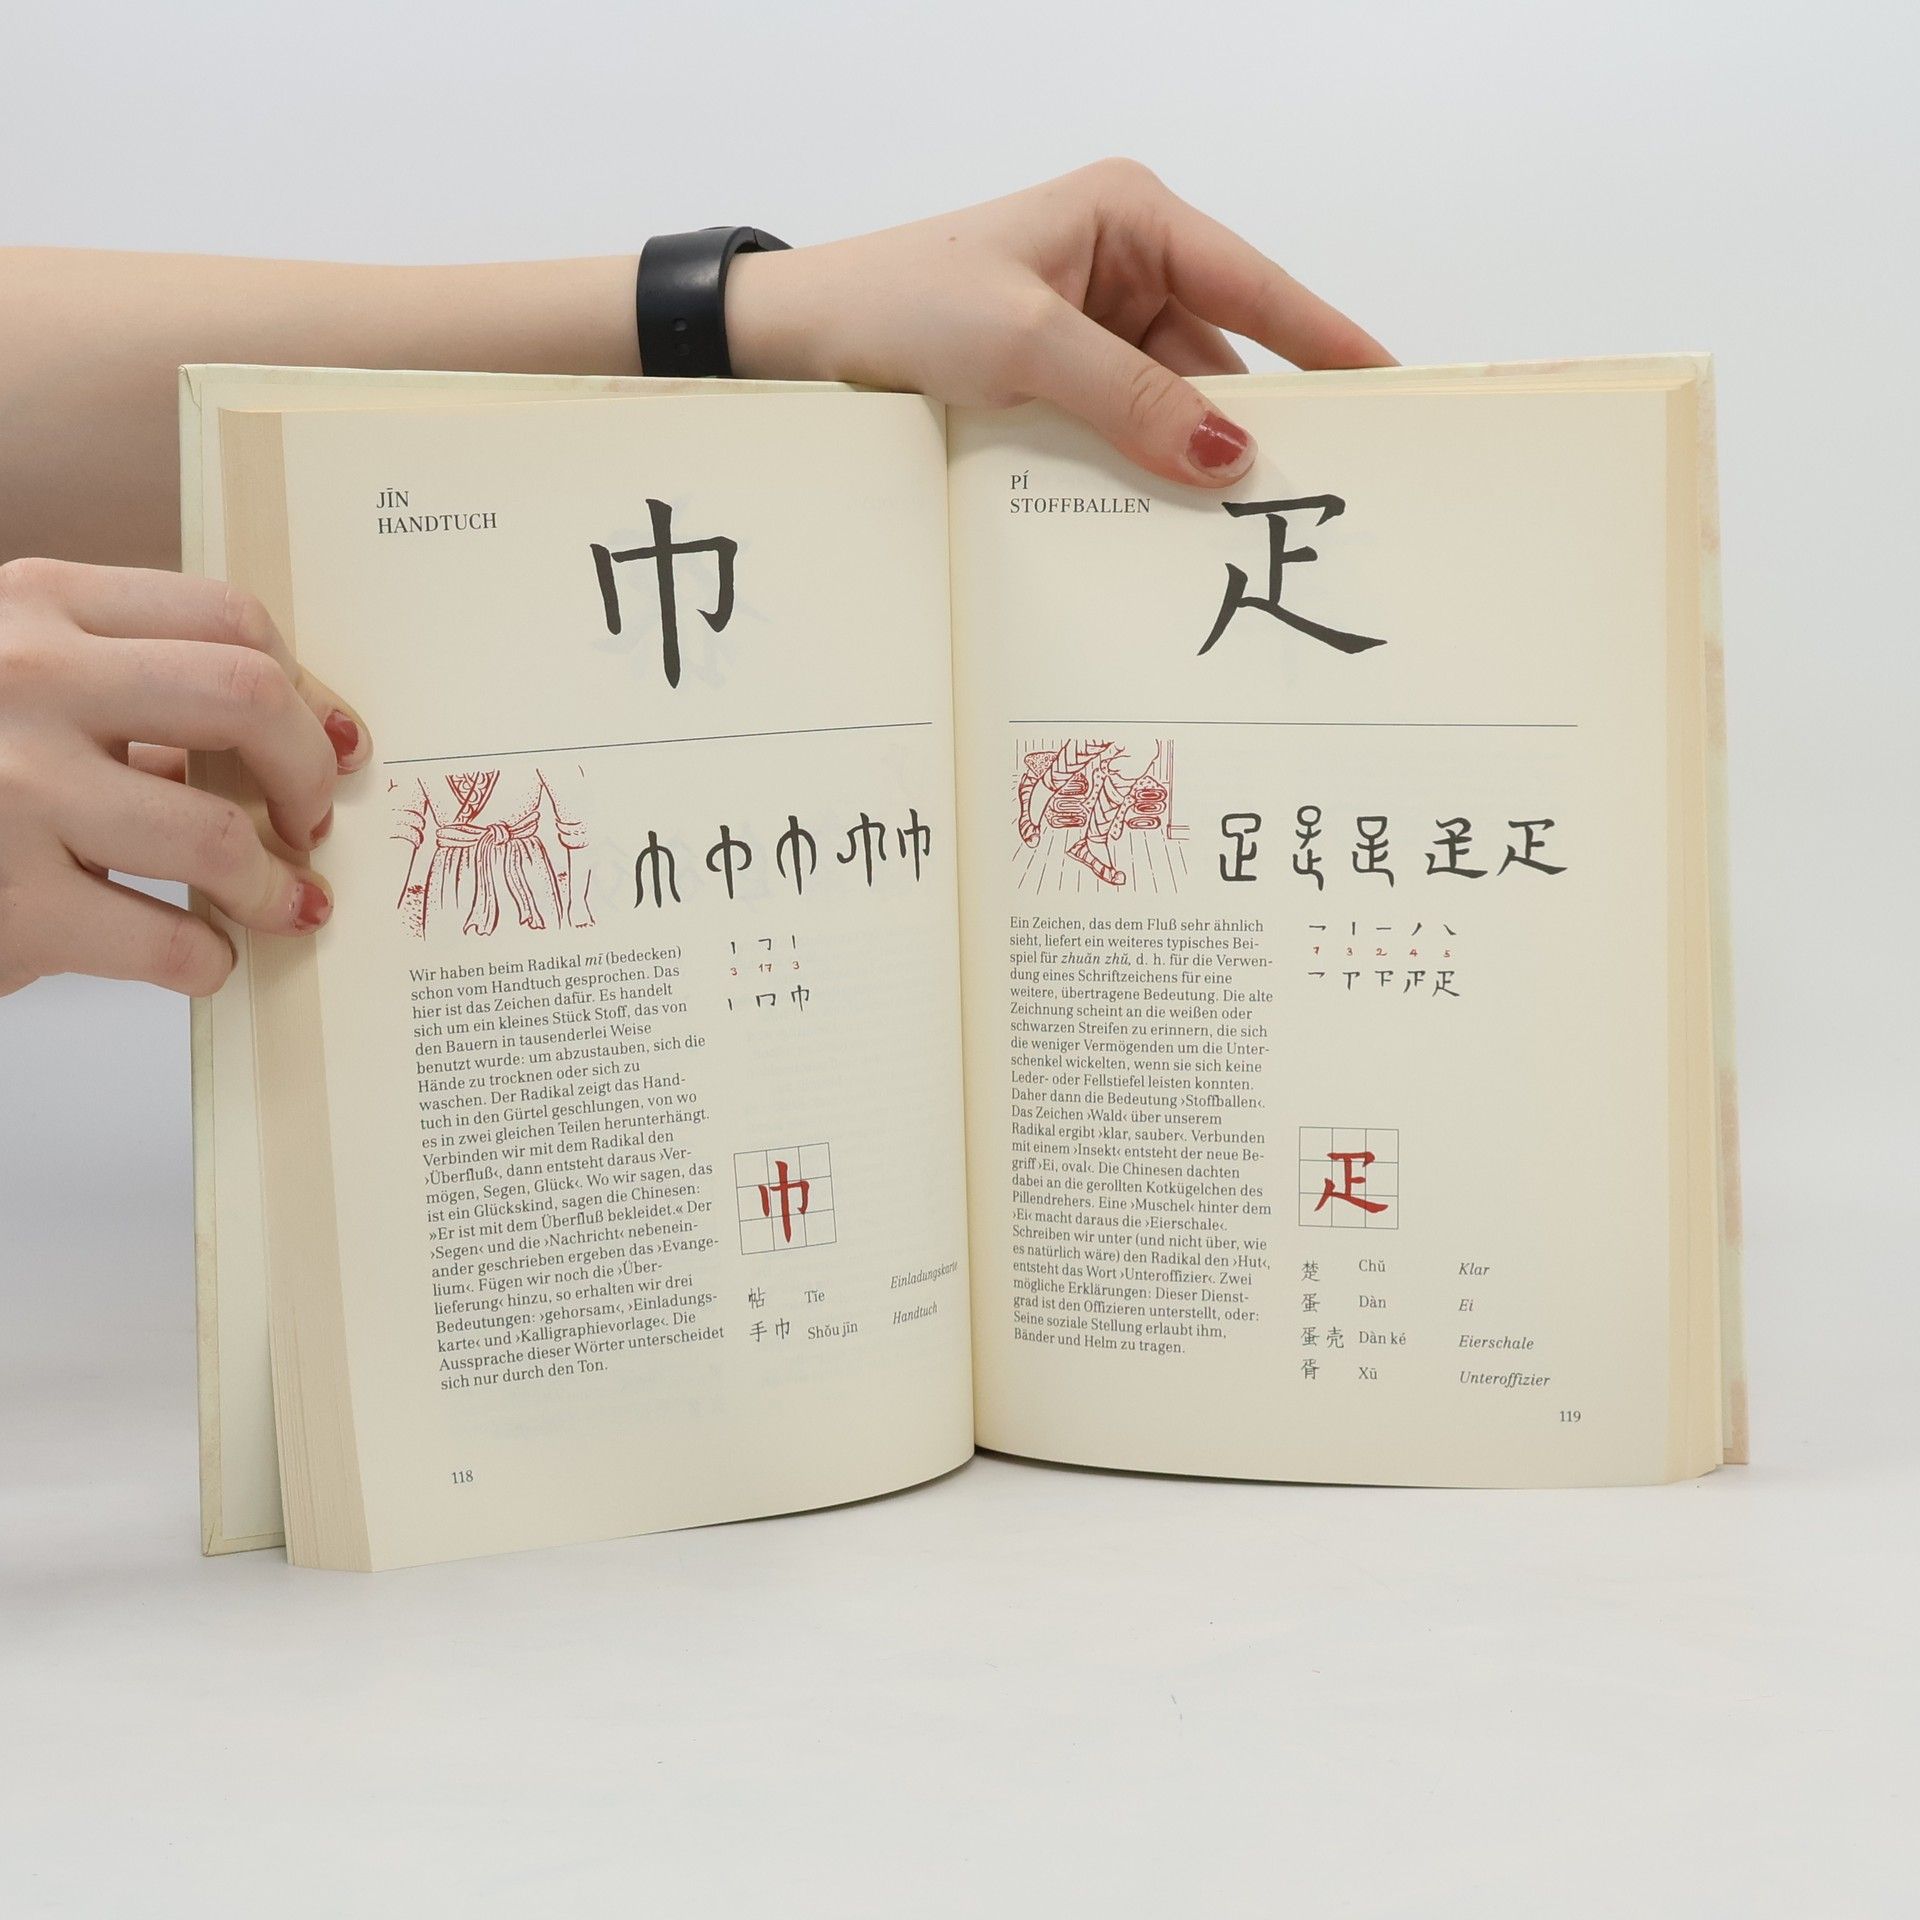 JĪN
HANDTUCH
巾
Wir haben beim Radikal mī (bedecken)
schon vom Handtuch gesprochen. Das
hier ist das Zeichen dafür. Es handelt
sich um ein kleines Stück Stoff, das von
den Bauern in tausenderlei Weise
benutzt wurde: um abzustauben, sich die
Hände zu trocknen oder sich zu
waschen. Der Radikal zeigt das Hand-
tuch in den Gürtel geschlungen, von wo
es in zwei gleichen Teilen herunterhängt.
Verbinden wir mit dem Radikal den
›Überfluß‹, dann entsteht daraus ›Ver-
mögen, Segen, Glück‹. Wo wir sagen, das
ist ein Glückskind, sagen die Chinesen:
»Er ist mit dem Überfluß bekleidet.« Der
›Segen‹ und die ›Nachricht‹ nebenein-
ander geschrieben ergeben das ›Evange-
lium‹. Fügen wir noch die ›Über-
lieferung‹ hinzu, so erhalten wir drei
Bedeutungen: ›gehorsam‹, ›Einladungs-
karte‹ und ›Kalligraphievorlage‹. Die
Aussprache dieser Wörter unterscheidet
sich nur durch den Ton.
3 17 3
巾
巾
帖 Tīe Einladungskarte
手巾 Shǒu jīn Handtuch
118
PÍ
STOFFBALLEN
疋
Ein Zeichen, das dem Fluß sehr ähnlich
sieht, liefert ein weiteres typisches Bei-
spiel für zhuǎn zhǔ, d. h. für die Verwen-
dung eines Schriftzeichens für eine
weitere, übertragene Bedeutung. Die alte
Zeichnung scheint an die weißen oder
schwarzen Streifen zu erinnern, die sich
die weniger Vermögenden um die Unter-
schenkel wickelten, wenn sie sich keine
Leder- oder Fellstiefel leisten konnten.
Daher dann die Bedeutung ›Stoffballen‹.
Das Zeichen ›Wald‹ über unserem
Radikal ergibt ›klar, sauber‹. Verbunden
mit einem ›Insekt‹ entsteht der neue Be-
griff ›Ei, oval‹. Die Chinesen dachten
dabei an die gerollten Kotkügelchen des
Pillendrehers. Eine ›Muschel‹ hinter dem
›Ei‹ macht daraus die ›Eierschale‹.
Schreiben wir unter (und nicht über, wie
es natürlich wäre) den Radikal den ›Hut‹,
entsteht das Wort ›Unteroffizier‹. Zwei
mögliche Erklärungen: Dieser Dienst-
grad ist den Offizieren unterstellt, oder:
Seine soziale Stellung erlaubt ihm,
Bänder und Helm zu tragen.
7 3 2 4 5
疋
疋
楚 Chǔ Klar
蛋 Dàn Ei
蛋壳 Dàn ké Eierschale
胥 Xū Unteroffizier
119